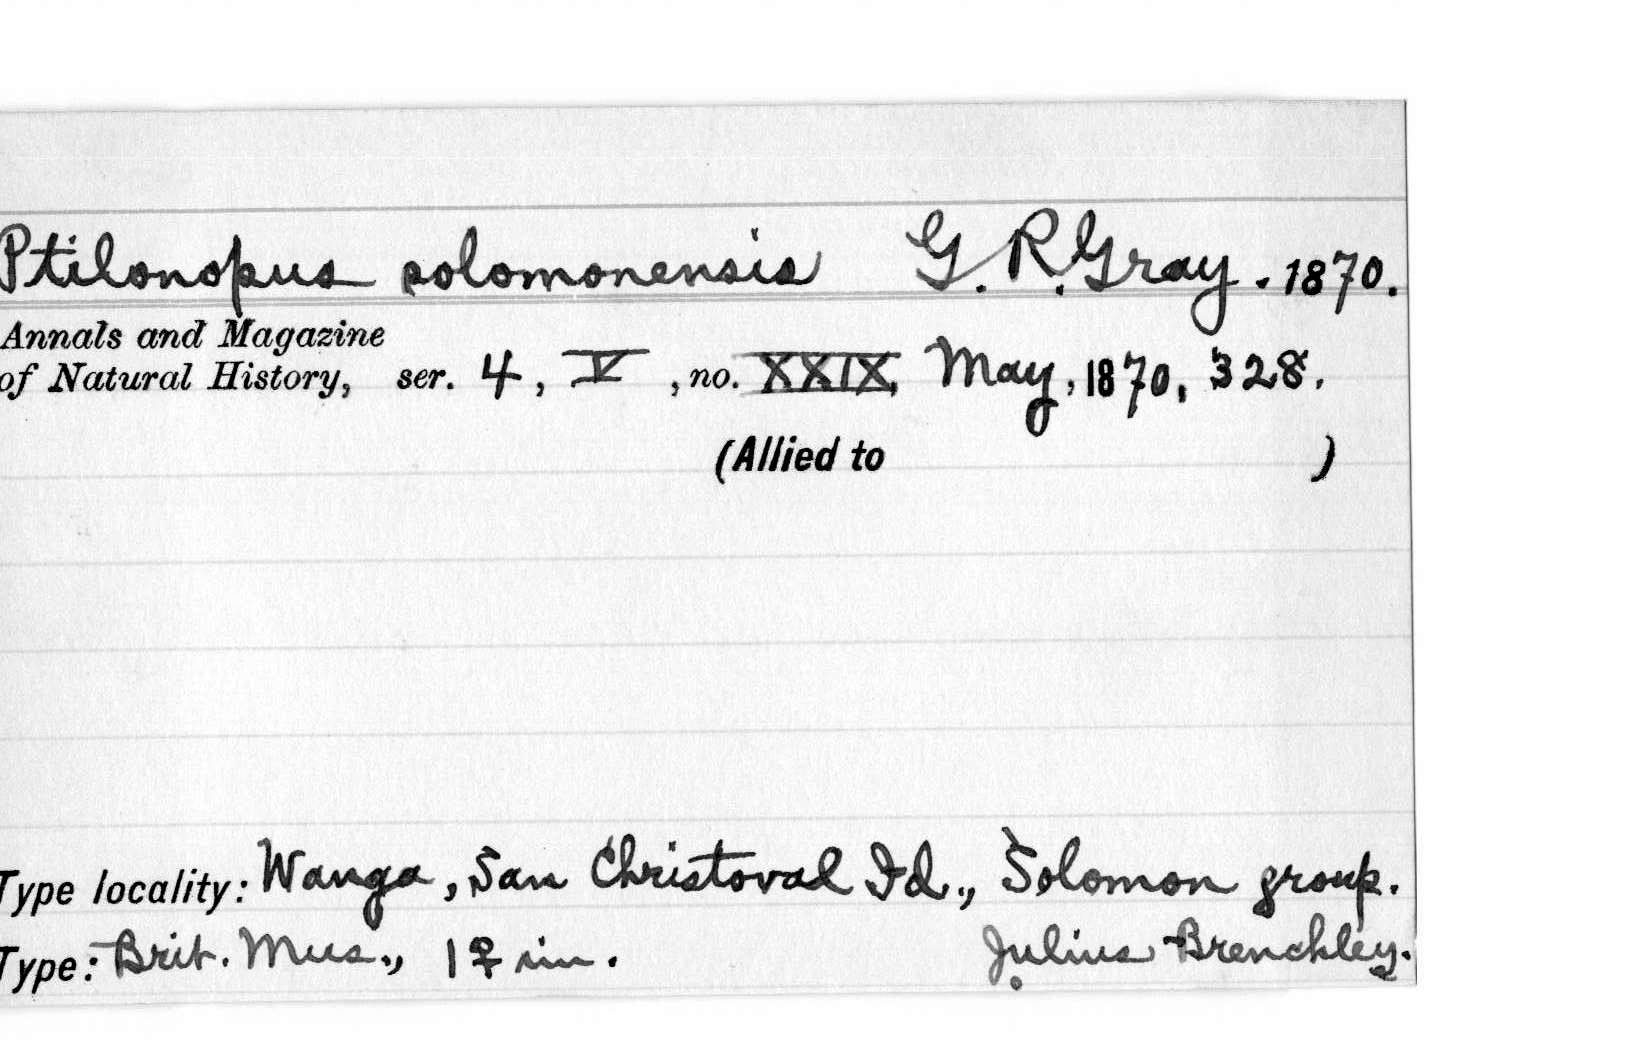 Ptilonopus solomonensis G. R. Gray. 1870.
Annals and Magazine
of Natural History, ser. 4, V, no. XXIX, May, 1870, 328.
(Allied to )
Type locality: Wanga, San Christoval Id., Solomon group.
Type: Brit. Mus., 1 ♀ im. Julius Brenchley.